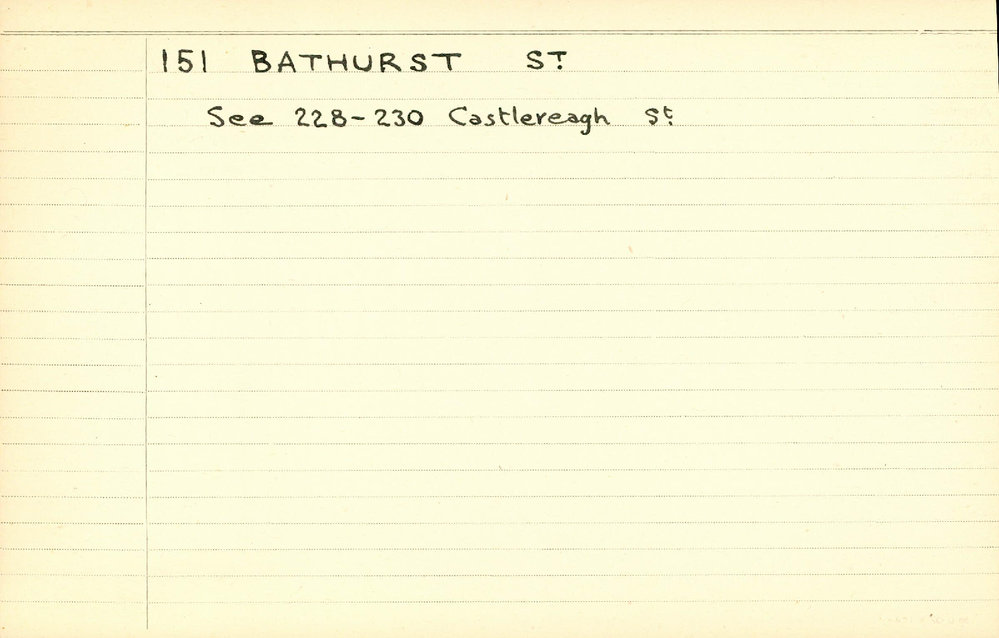 151 BATHURST ST.
See 228-230 Castlereagh St.